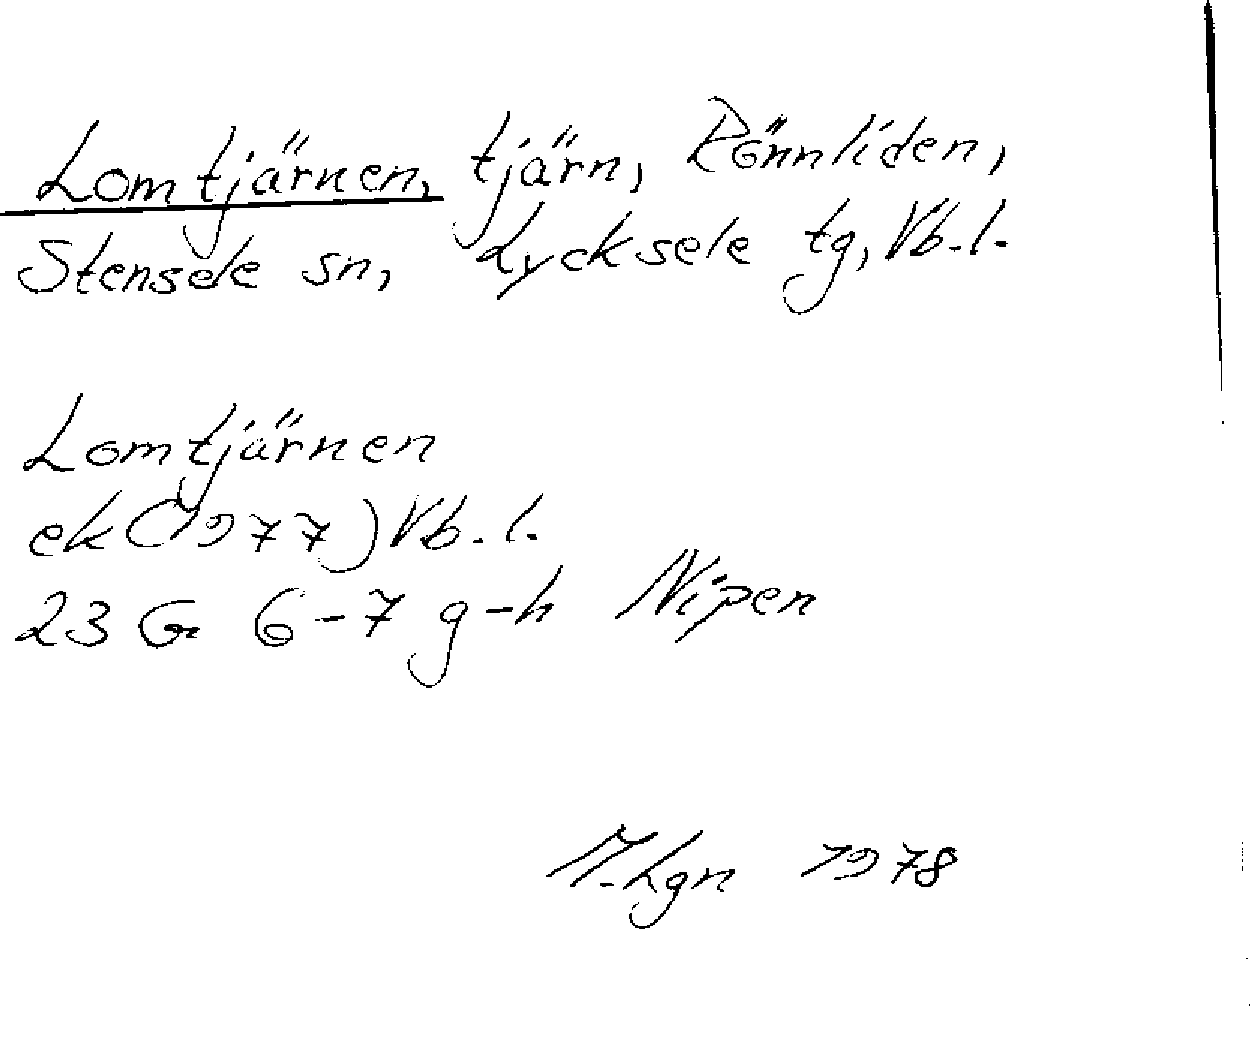 Lomtjärnen, tjärn, Rönnliden,
Stensele sn, Lycksele tg, Vb. l.
Lomtjärnen
ek (1977) Vb. l.
23 G 6-7 g-h Nipen
M. Lgn 1978